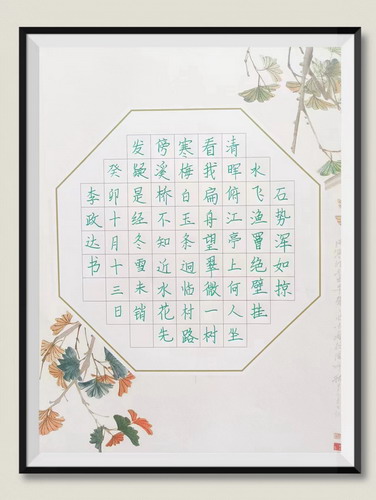 石势浑如掠
水飞渔罾绝壁挂
清晖俯江亭上何人坐
看我扁舟望翠微一树
寒梅白玉条迥临村路
傍溪桥不知近水花先
发疑是经冬雪未销
癸卯十月十三日
李政达书